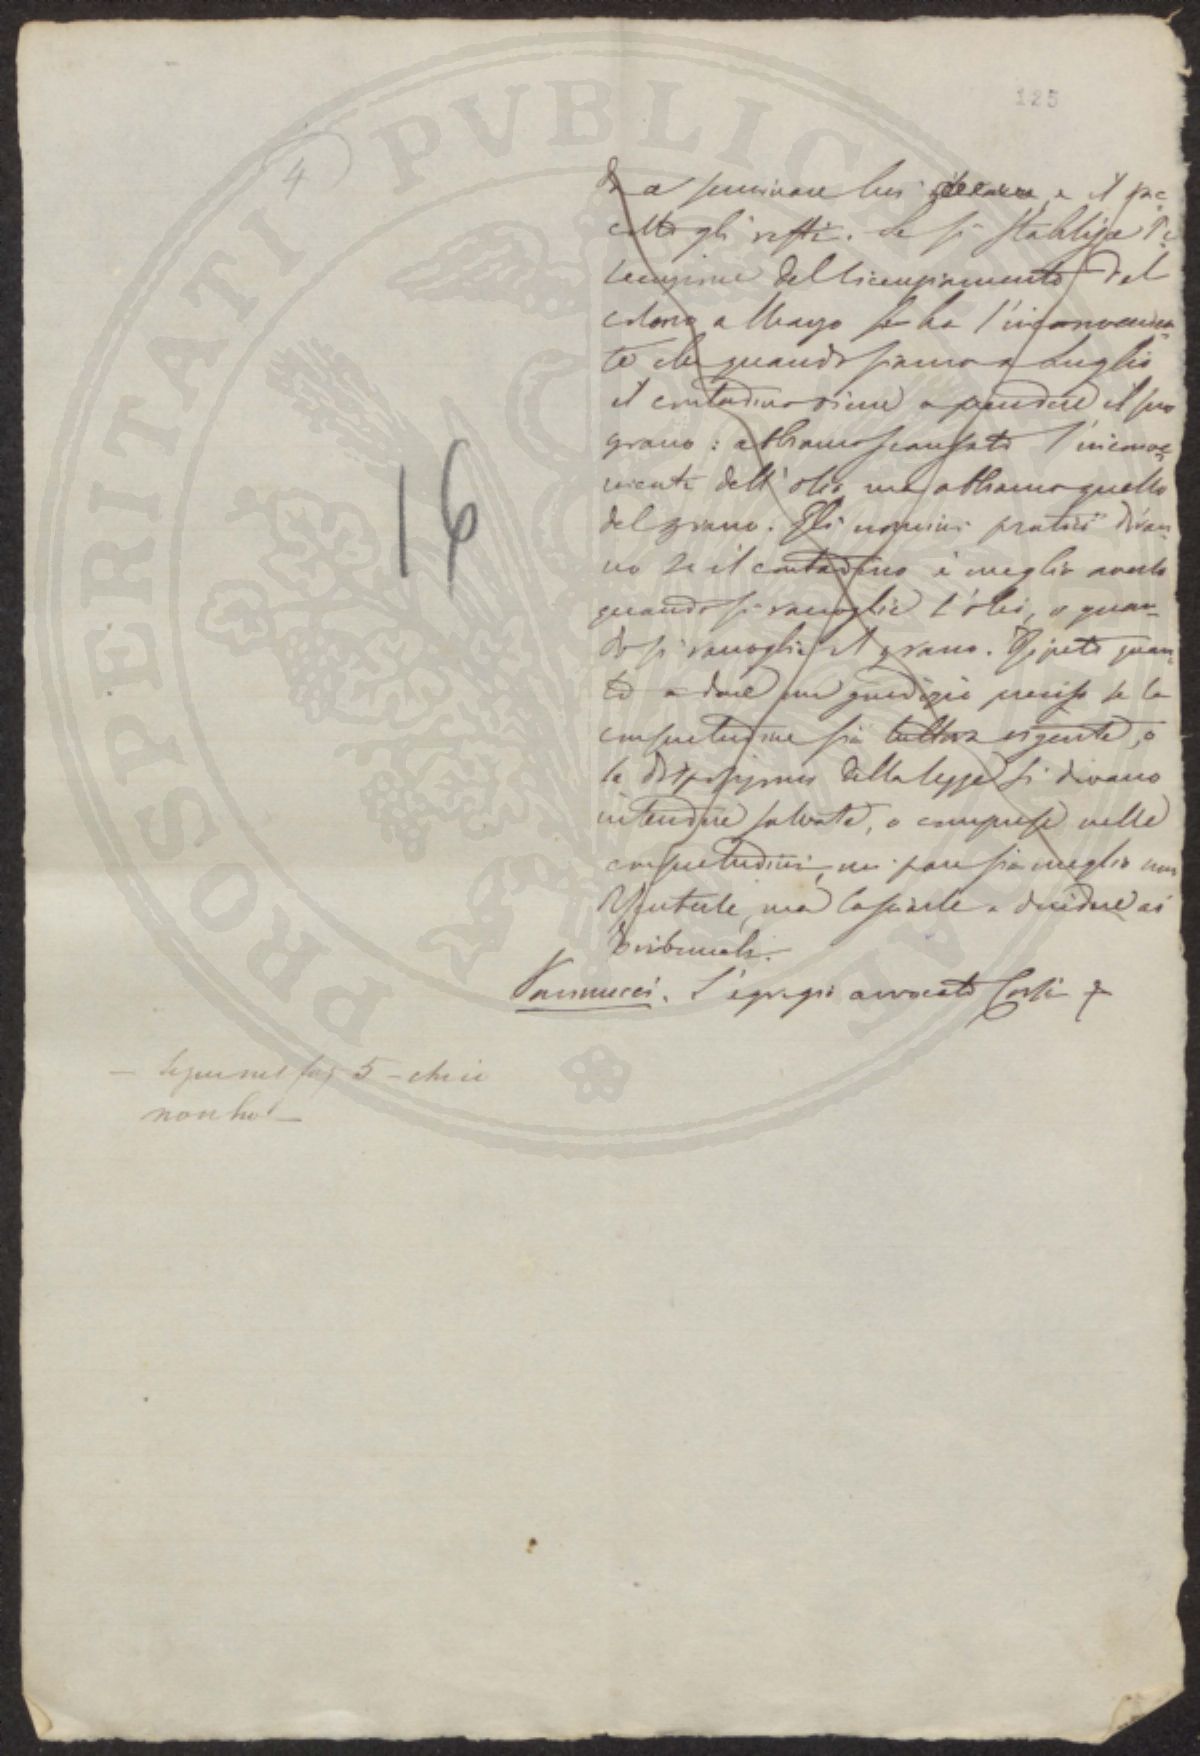 125
4
PROSPERITATI PUBLICAE
a seminare lui, e il
gli resti. Se si stabilisce
del licenziamento del
colono a Maggio si ha l'inconvenien=
te che quando siamo a Luglio
il contadino viene a prendere il suo
grano: abbiamo scansato l'inconve=
niente dell'olio ma abbiamo quello
del grano. Gli uomini pratici diran=
no se il contadino è meglio averlo
quando si raccoglie l'olio, o quan=
do si raccoglie il grano. Ripeto quan=
to a dare un giudizio preciso se la
consuetudine sia tuttora vigente, o
le disposizioni della legge si devano
intendere salvate, o comprese nelle
consuetudini, mi pare sia meglio non
, ma lasciarle a decidere ai
Tribunali.
Vannucci. L'egregio avvocato
16
– Segue nel fog 5 – che io
non ho –